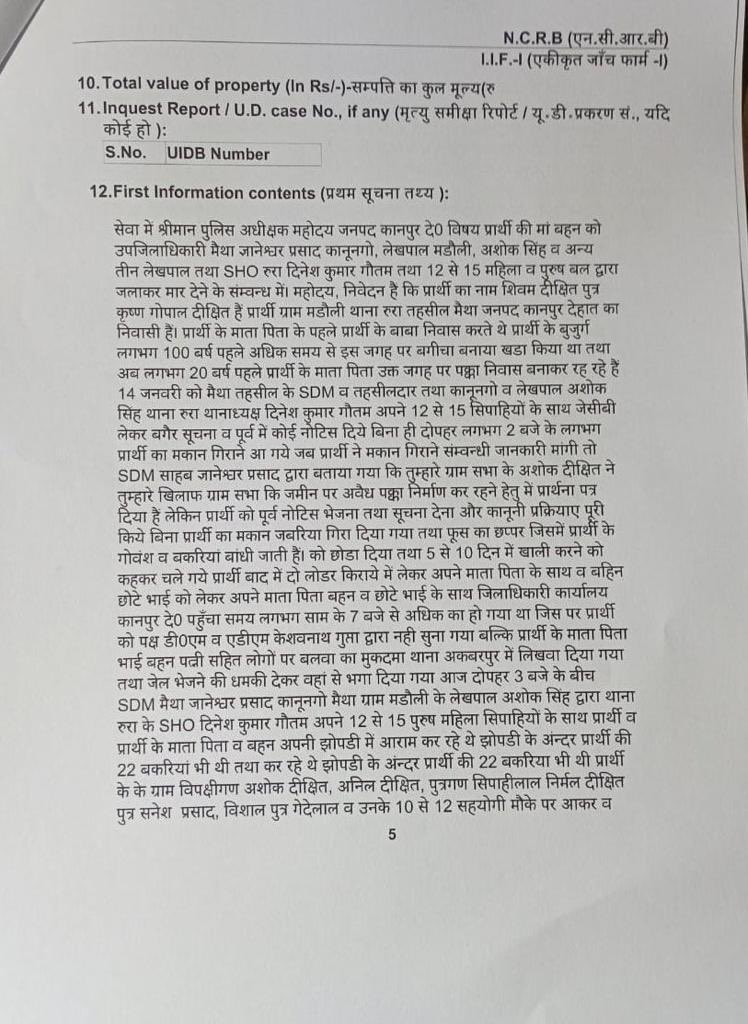 N.C.R.B (एन.सी.आर.बी)
I.I.F.-I (एकीकृत जाँच फार्म -I)
10. Total value of property (In Rs/-)-सम्पत्ति का कुल मूल्य(रु
11. Inquest Report / U.D. case No., if any (मृत्यु समीक्षा रिपोर्ट / यू.डी.प्रकरण सं., यदि
कोई हो ):
S.No. UIDB Number
12.First Information contents (प्रथम सूचना तथ्य ):
सेवा में श्रीमान पुलिस अधीक्षक महोदय जनपद कानपुर दे0 विषय प्रार्थी की मां बहन को
उपजिलाधिकारी मैथा ज्ञानेश्वर प्रसाद कानूनगो, लेखपाल मडौली, अशोक सिंह व अन्य
तीन लेखपाल तथा SHO रुरा दिनेश कुमार गौतम तथा 12 से 15 महिला व पुरुष बल द्वारा
जलाकर मार देने के संम्वन्ध में। महोदय, निवेदन है कि प्रार्थी का नाम शिवम दीक्षित पुत्र
कृष्ण गोपाल दीक्षित हैं प्रार्थी ग्राम मडौली थाना रुरा तहसील मैथा जनपद कानपुर देहात का
निवासी हैं। प्रार्थी के माता पिता के पहले प्रार्थी के बाबा निवास करते थे प्रार्थी के बुजुर्ग
लगभग 100 बर्ष पहले अधिक समय से इस जगह पर बगीचा बनाया खडा किया था तथा
अब लगभग 20 बर्ष पहले प्रार्थी के माता पिता उक्त जगह पर पक्का निवास बनाकर रह रहे हैं
14 जनवरी को मैथा तहसील के SDM व तहसीलदार तथा कानूनगो व लेखपाल अशोक
सिंह थाना रुरा थानाध्यक्ष दिनेश कुमार गौतम अपने 12 से 15 सिपाहियों के साथ जेसीबी
लेकर बगैर सूचना व पूर्व में कोई नोटिस दिये बिना ही दोपहर लगभग 2 बजे के लगभग
प्रार्थी का मकान गिराने आ गये जब प्रार्थी ने मकान गिराने संम्वन्धी जानकारी मांगी तो
SDM साहब ज्ञानेश्वर प्रसाद द्वारा बताया गया कि तुम्हारे ग्राम सभा के अशोक दीक्षित ने
तुम्हारे खिलाफ ग्राम सभा कि जमीन पर अवैध पक्का निर्माण कर रहने हेतु में प्रार्थना पत्र
दिया हैं लेकिन प्रार्थी को पूर्व नोटिस भेजना तथा सूचना देना और कानूनी प्रक्रियाए पूरी
किये बिना प्रार्थी का मकान जबरिया गिरा दिया गया तथा फूस का छप्पर जिसमें प्रार्थी के
गोवंश व बकरियां बांधी जाती हैं। को छोडा दिया तथा 5 से 10 दिन में खाली करने को
कहकर चले गये प्रार्थी बाद में दो लोडर किराये में लेकर अपने माता पिता के साथ व बहिन
छोटे भाई को लेकर अपने माता पिता बहन व छोटे भाई के साथ जिलाधिकारी कार्यालय
कानपुर दे0 पहुँचा समय लगभग साम के 7 बजे से अधिक का हो गया था जिस पर प्रार्थी
को पक्ष डी0एम व एडीएम केशवनाथ गुप्ता द्वारा नही सुना गया बल्कि प्रार्थी के माता पिता
भाई बहन पत्नी सहित लोगों पर बलवा का मुकदमा थाना अकबरपुर में लिखवा दिया गया
तथा जेल भेजने की धमकी देकर वहां से भगा दिया गया आज दोपहर 3 बजे के बीच
SDM मैथा ज्ञानेश्वर प्रसाद कानूनगो मैथा ग्राम मडौली के लेखपाल अशोक सिंह द्वारा थाना
रुरा के SHO दिनेश कुमार गौतम अपने 12 से 15 पुरुष महिला सिपाहियों के साथ प्रार्थी व
प्रार्थी के माता पिता व बहन अपनी झोपडी में आराम कर रहे थे झोपडी के अंन्दर प्रार्थी की
22 बकरियां भी थी तथा कर रहे थे झोपडी के अंन्दर प्रार्थी की 22 बकरिया भी थी प्रार्थी
के के ग्राम विपक्षीगण अशोक दीक्षित, अनिल दीक्षित, पुत्रगण सिपाहीलाल निर्मल दीक्षित
पुत्र सनेश प्रसाद, विशाल पुत्र गेदेलाल व उनके 10 से 12 सहयोगी मौके पर आकर व
5